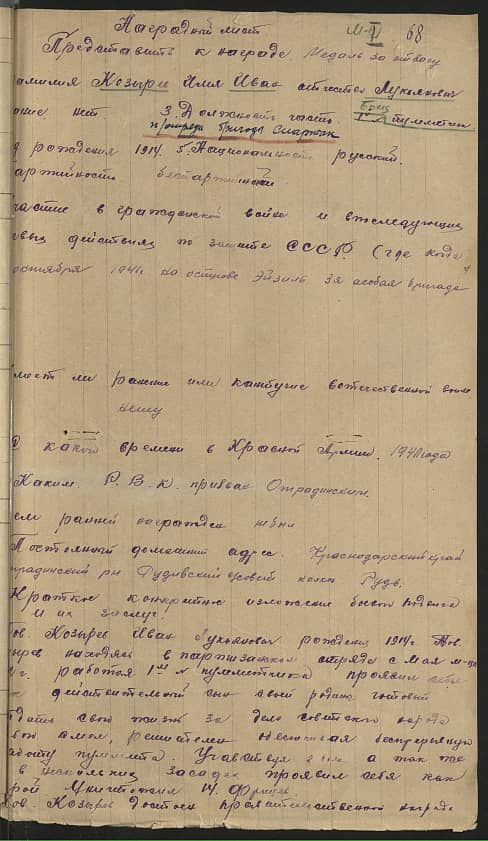 68
Наградной лист
Представить к награде Медаль за отвагу
амилия Козырев Имя Иван отчество Лукьянович
ание нет 3. Должность часть. боец 1й № пулеметчик
п/отряда бригады Спартак
рождения 1914. 5. Национальность русский.
артийность беспартийный
частие в гражданской войне и впоследующих
евых действиях по защите СССР. (где когда
октября 1941 на острове Эйзель 3я особая бригада
меет ли ранение или контузие вотечественной войне
нету
С какого времени в Красной Армии. 1940 года
Каким Р.В.К. призван Отрадинским.
ем раней награжден небыл
Постоянный домашний адрес. Краснодарский край
традинский рн
Краткое конкретное изложение боевого подвига
и их заслуг.
ов. Козырев Иван Лукьянович рождения 1914 г. Тов.
зырев находясь в партизанском отряде с мая м-ца
г. работая 1ым № пулеметчика проявил себя
к действительный сын своей родины готовый
тдать свою жизнь за дело советского народа
решителен обеспечивал беспрерывную
аботу пулемета. Участвуя а так же
в нескольких засадах проявил себя как
рой Уничтожил 14 Фрицев.
ов. Козырев достоен правительственной награде